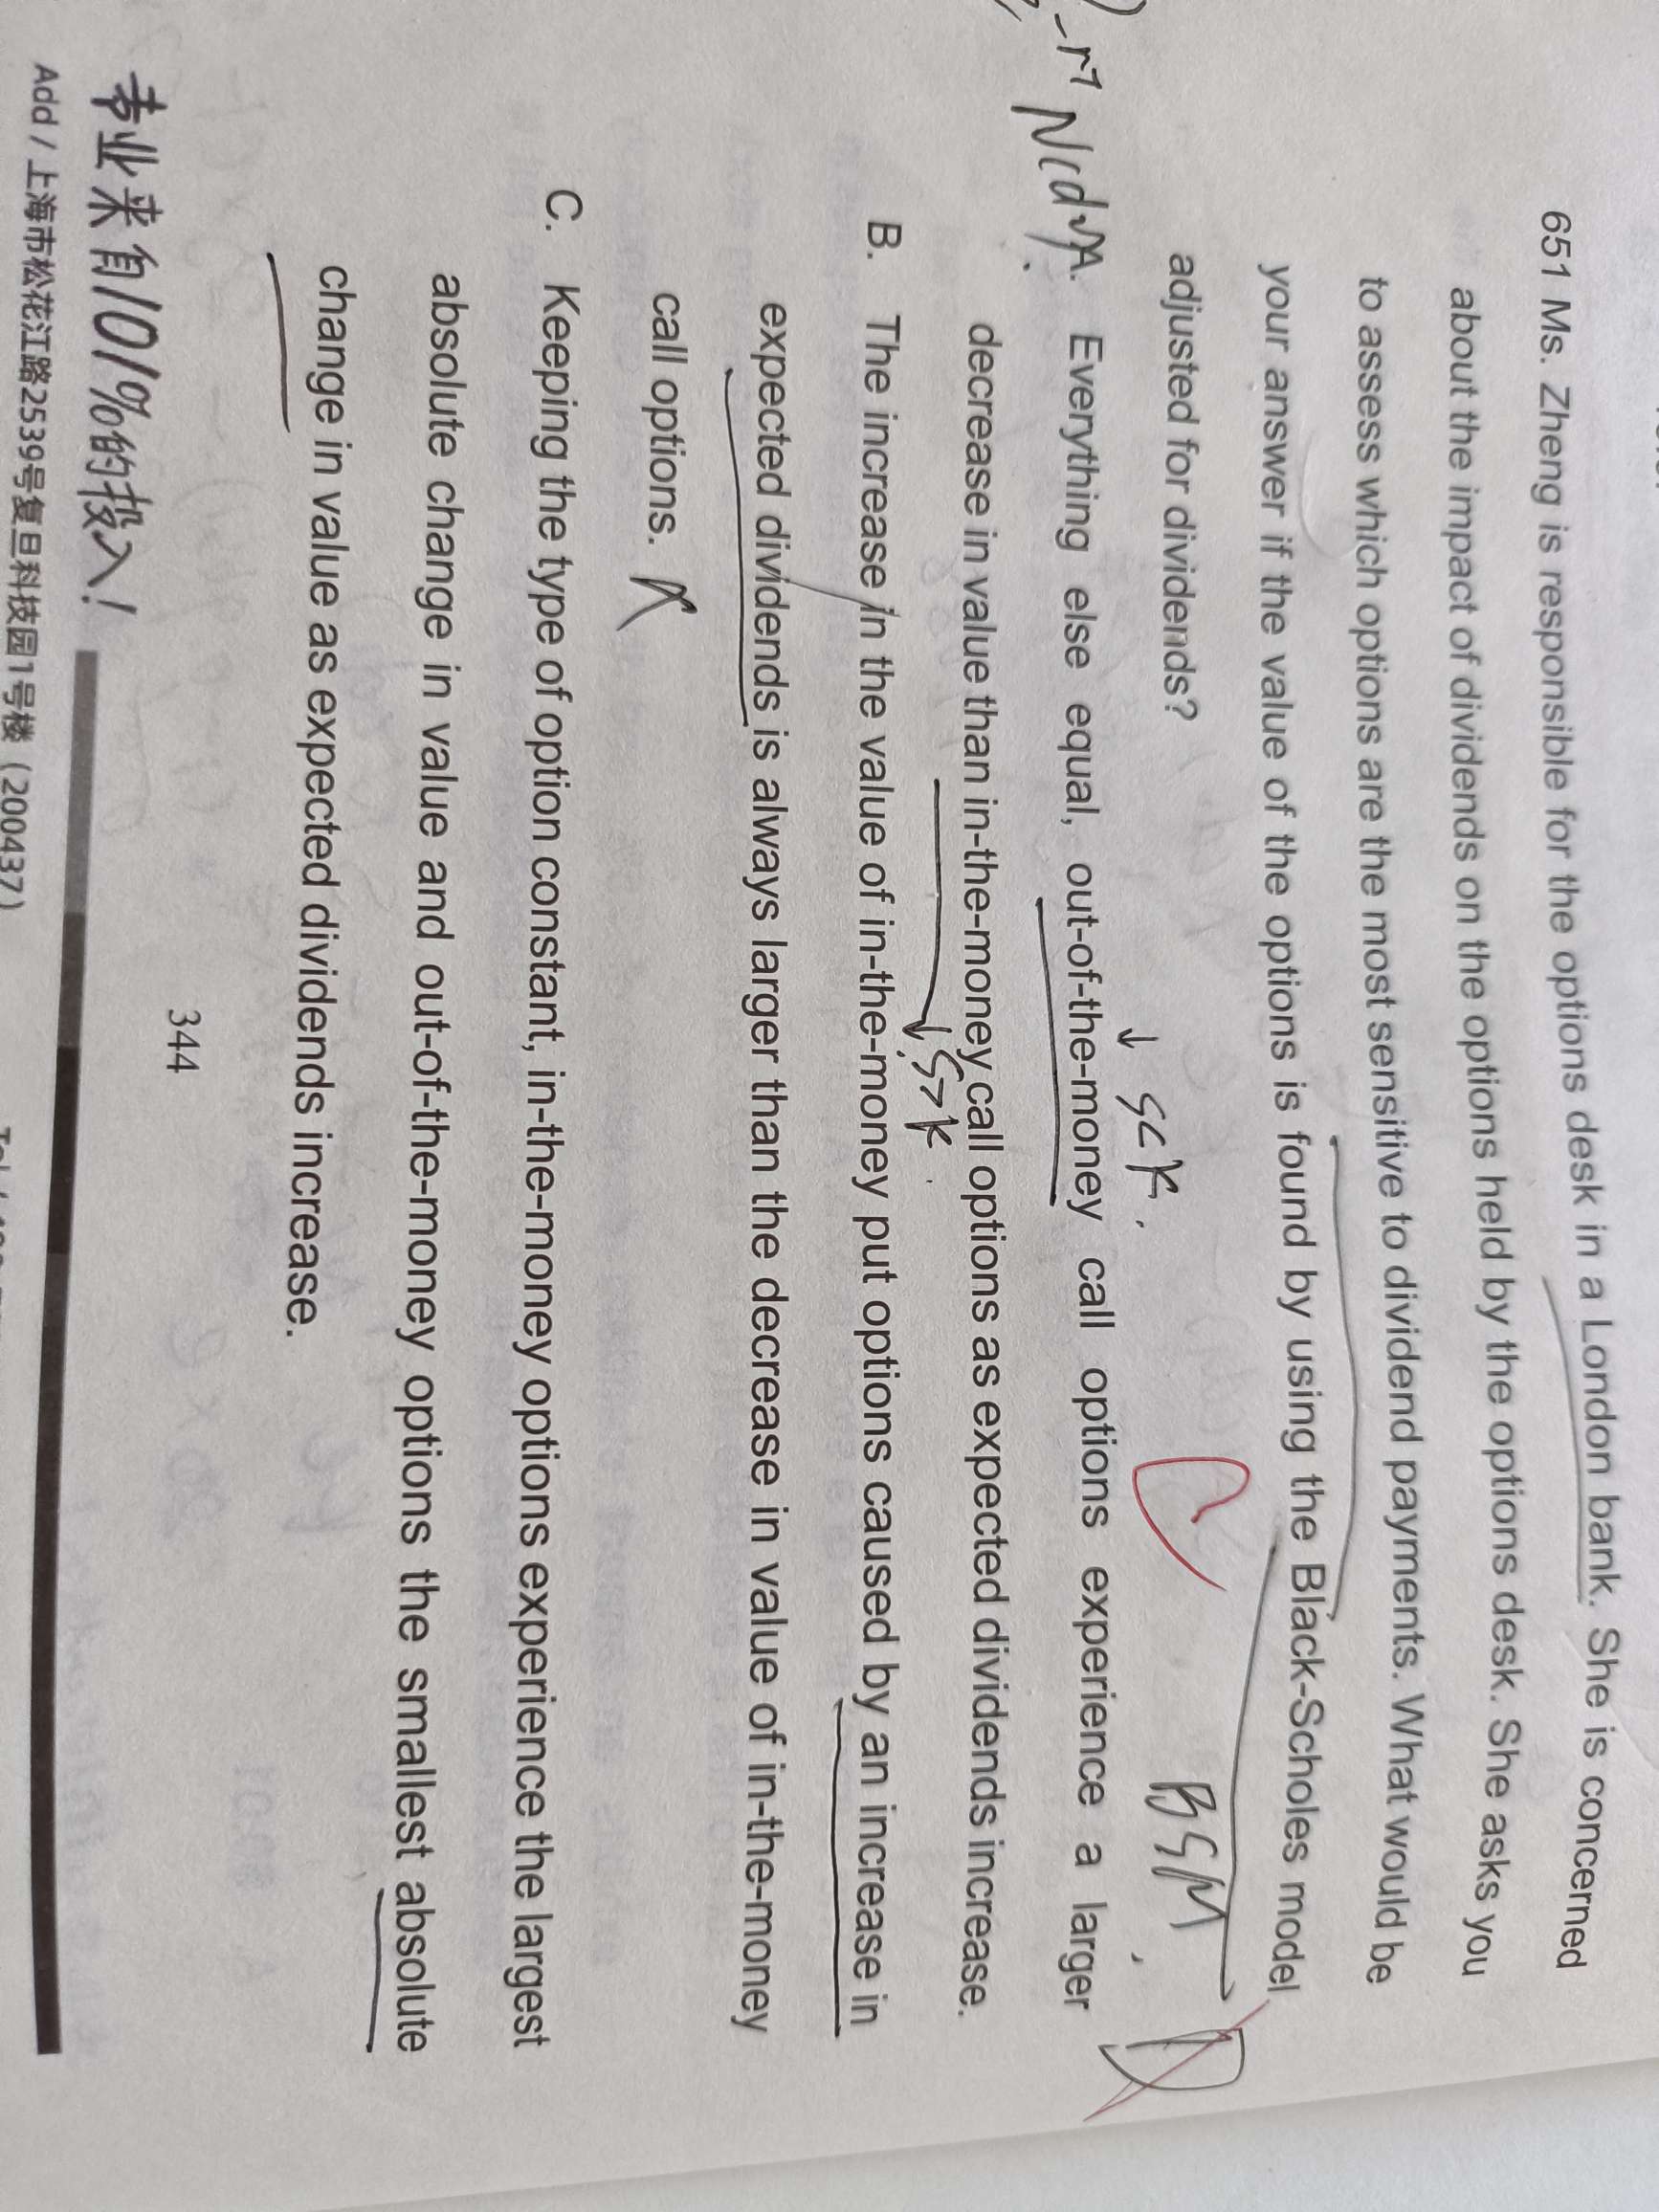 651 Ms. Zheng is responsible for the options desk in a London bank. She is concerned
about the impact of dividends on the options held by the options desk. She asks you
to assess which options are the most sensitive to dividend payments. What would be
your answer if the value of the options is found by using the Black-Scholes model
adjusted for dividends?
C
BSM
D
↓ S<K.
A. Everything else equal, out-of-the-money call options experience a larger
decrease in value than in-the-money call options as expected dividends increase.
↓ S>K.
B. The increase in the value of in-the-money put options caused by an increase in
expected dividends is always larger than the decrease in value of in-the-money
call options.
C. Keeping the type of option constant, in-the-money options experience the largest
absolute change in value and out-of-the-money options the smallest absolute
change in value as expected dividends increase.
344
专业来自101%的投入!
Add / 上海市松花江路2539号复旦科技园1号楼 (200437)